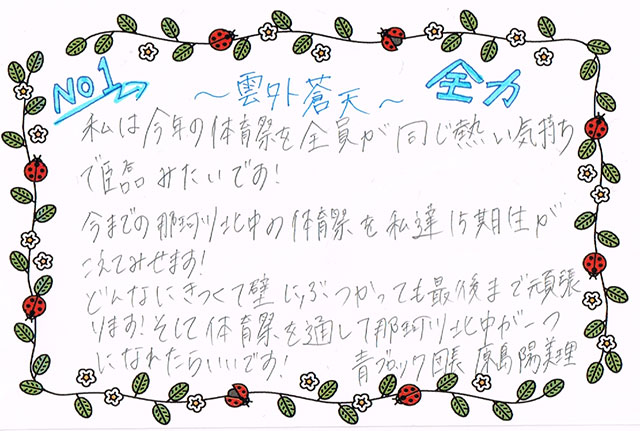 NO1
～雲外蒼天～ 全力
私は今年の体育祭を全員が同じ熱い気持ち
で臨みたいです！
今までの那珂川北中の体育祭を私達15期生が
こえてみせます！
どんなにきつくて壁にぶつかっても最後まで頑張
ります！そして体育祭を通して那珂川北中が一つ
になれたらいいです！
青ブロック団長 原島陽美理